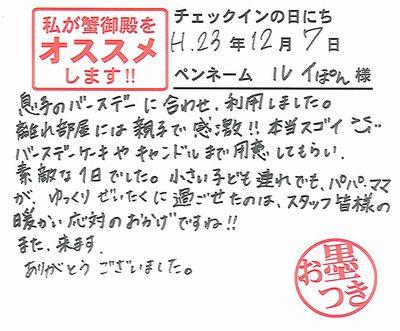 私が蟹御殿を
オススメ
します!!
チェックインの日にち
H.23年12月7日
ペンネーム ルイぽん 様
息子のバースデーに合わせ、利用しました。
離れ部屋には親子で感激!!本当スゴイ
バースデーケーキやキャンドルまで用意してもらい、
素敵な1日でした。小さい子ども連れでも、パパ、ママ
が、ゆっくりぜいたくに過ごせたのは、スタッフ皆様の
暖かい応対のおかげですね!!
また、来ます。
ありがとうございました。
お墨
つき